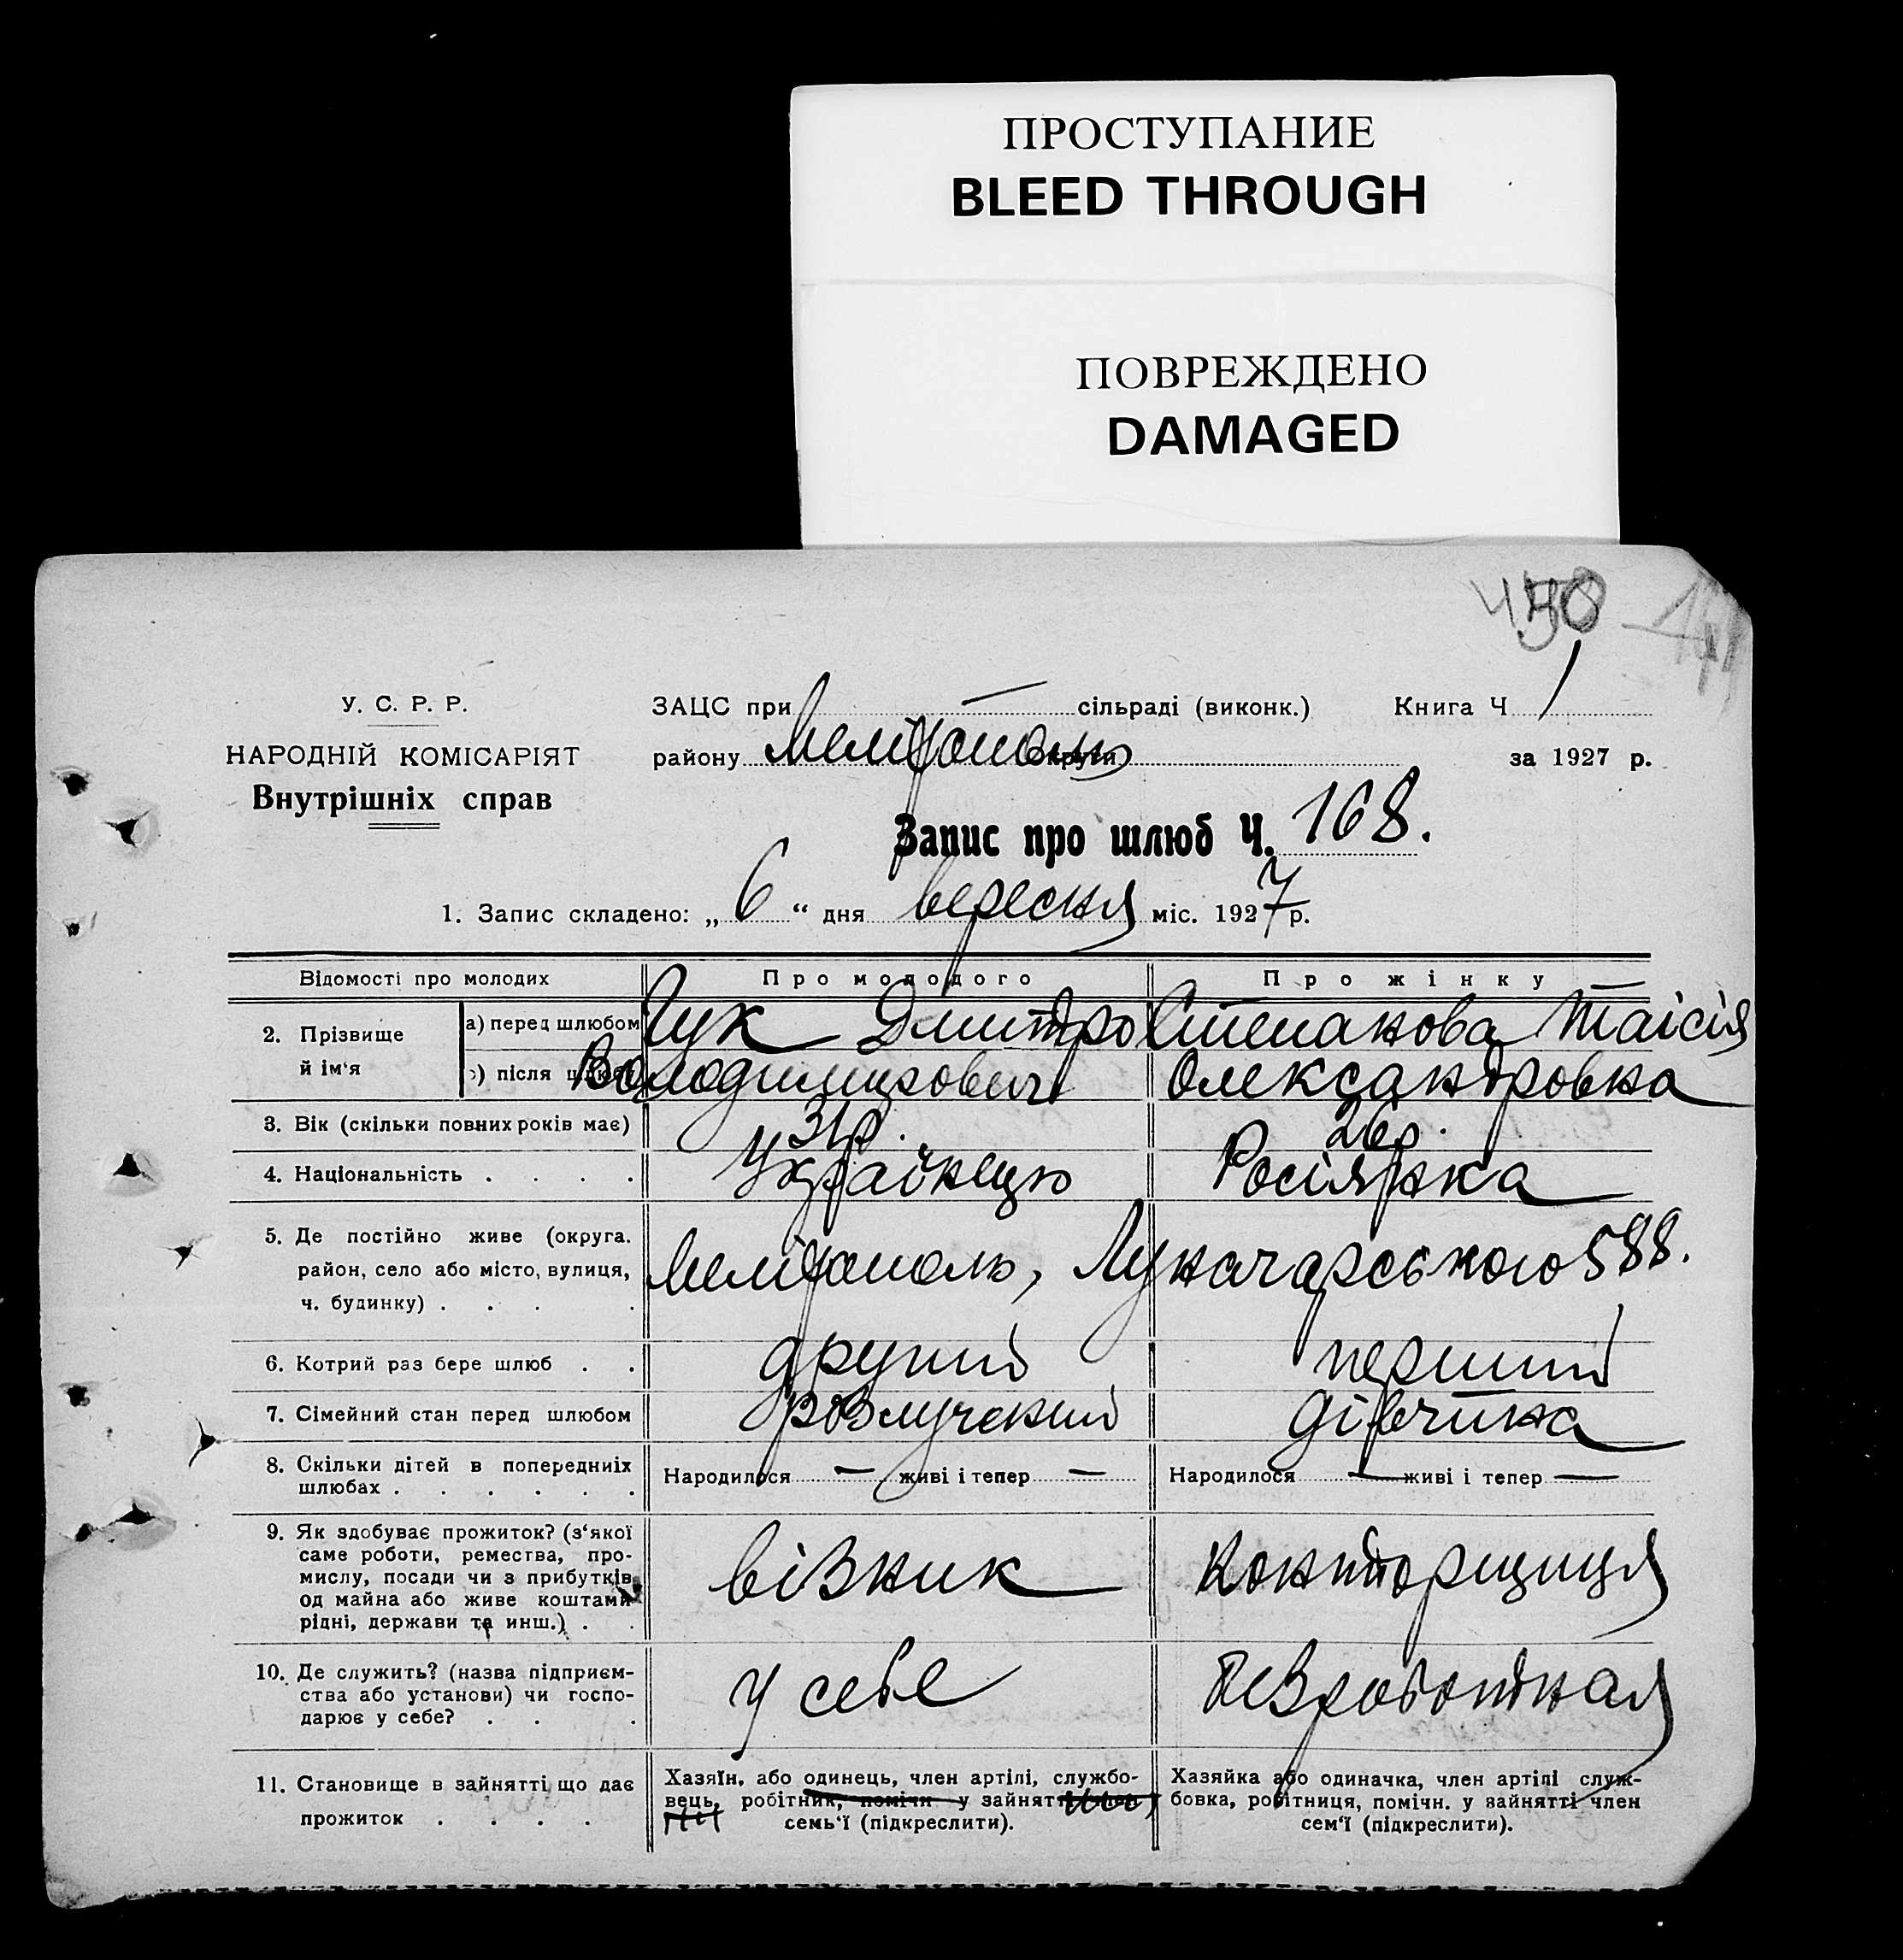 ПРОСТУПАНИЕ
BLEED THROUGH
ПОВРЕЖДЕНО
DAMAGED
У. С. Р. Р.
НАРОДНІЙ КОМІСАРІЯТ
Внутрішніх справ
ЗАЦС при — сільраді (виконк.) Книга Ч 1
району Мелітополь округи за 1927 р.
Запис про шлюб Ч. 168.
1. Запис складено: „ 6 “ дня вересня міс. 1927 р.
Відомості про молодих Про молодого Про жінку
2. Прізвище й ім‘я а) перед шлюбом Гук Дмитро Степанова Таісія
після шлюбу Володимирович Олександровна
3. Вік (скільки повних років має) 31р. 26р.
4. Національність . . . . Українець Росіянка
5. Де постійно живе (округа.
район, село або місто, вулиця,
ч. будинку) . . . . Мелітополь, Луначарського 588.
6. Котрий раз бере шлюб . . другий перший
7. Сімейний стан перед шлюбом розлучений дівчина
8. Скільки дітей в попередніх
шлюбах . . . . . . Народилося — живі і тепер — Народилося — живі і тепер —
9. Як здобуває прожиток? (з‘якої
саме роботи, ремества, про-
мислу, посади чи з прибутків
од майна або живе коштами
рідні, держави та инш.) . . візник конторщиця
10. Де служить? (назва підприєм-
ства або установи) чи госпо-
дарює у себе? . . . у себе безработная
11. Становище в зайнятті що дає
прожиток . . . .
Хазяїн, або одинець, член артілі, службо-
вець, робітник, помічн у зайнятті член
семь‘ї (підкреслити).
Хазяйка або одиначка, член артілі служ-
бовка, робітниця, помічн. у зайнятті член
сем‘ї (підкреслити).